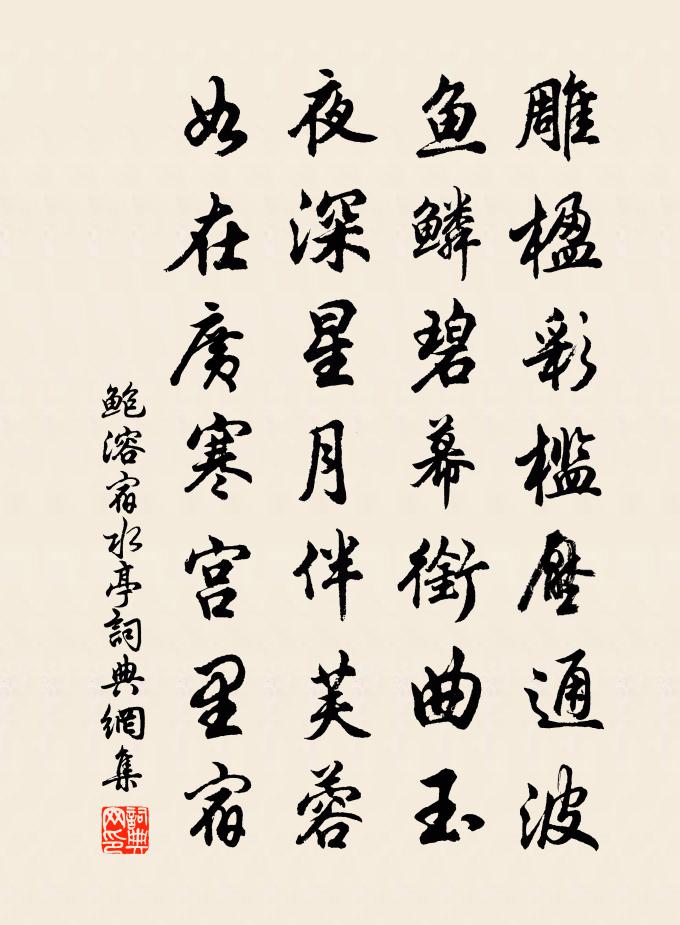 雕楹彩槛壓通波
鱼鱗碧幕銜曲玉
夜深星月伴芙蓉
如在廣寒宫里宿
鲍溶宿水亭詞典網集
詞典網印